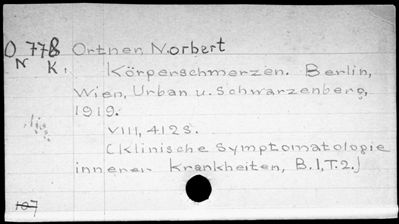 O 778 Ortner, Norbert
N K.
Körperschmerzen. Berlin,
Wien, Urban u. Schwarzenberg,
1919.
VIII, 412 S.
(Klinische Symptomatologie
innerer Krankheiten, B.1, T.2.)
107